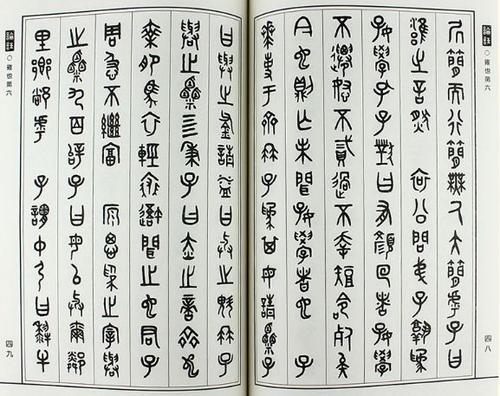 論語 ○雍也第六 四八
居簡而行簡無乃大簡乎子曰
雍之言然 哀公問弟子孰為
好學孔子對曰有顏回者好學
不遷怒不貳過不幸短命死矣
今也則亡未聞好學者也 子
華使于齊冉子為其母請粟子
曰與之釜請益曰與之庾冉子
與之粟五秉子曰赤之適齊也
乘肥馬衣輕裘吾聞之也君子
周急不繼富 原思為之宰與
之粟九百辭子曰毋以與爾鄰
里鄉黨乎 子謂仲弓曰犂牛
論語 ○雍也第六 四九